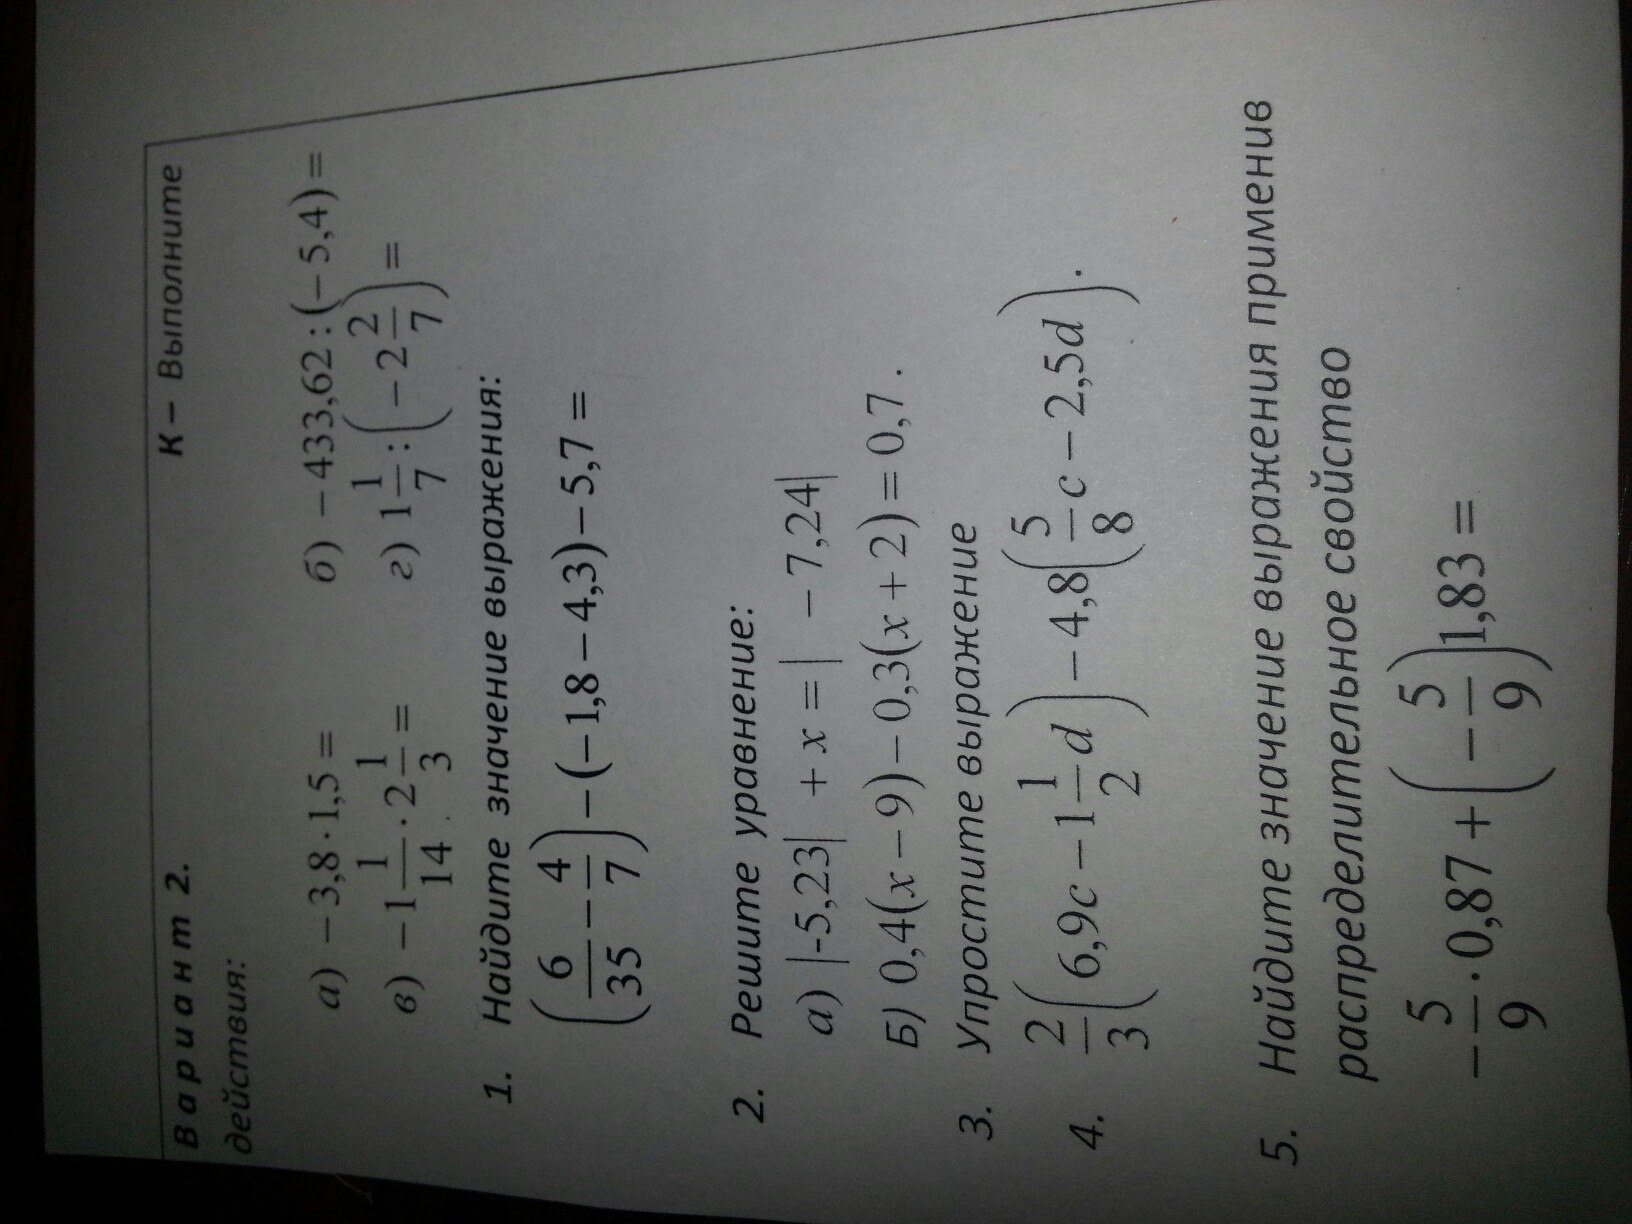 Вариант 2. К – Выполните
действия:
а) −3,8·1,5= б) −433,62:(−5,4)=
в) −1 1/14 · 2 1/3 = г) 1 1/7 : (−2 2/7) =
1. Найдите значение выражения:
(6/35 − 4/7) − (−1,8 − 4,3) − 5,7 =
2. Решите уравнение:
а) |-5,23| + x = | − 7,24|
Б) 0,4(x − 9) − 0,3(x + 2) = 0,7.
3. Упростите выражение
4. 2/3 (6,9c − 1 1/2 d) − 4,8(5/8 c − 2,5d).
5. Найдите значение выражения применив
распределительное свойство
− 5/9 · 0,87 + (− 5/9)1,83 =